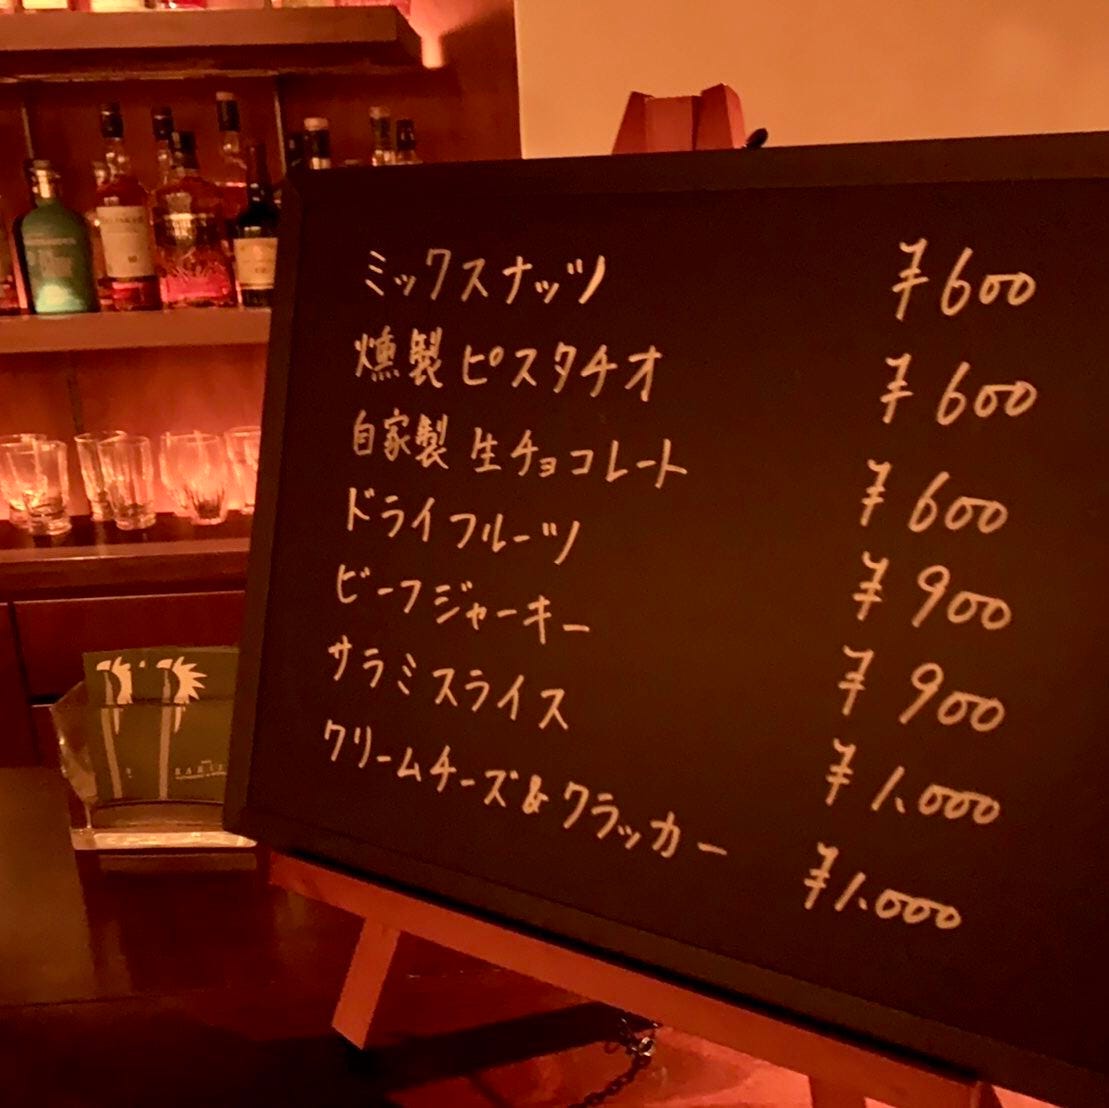 ミックスナッツ ¥600
燻製ピスタチオ ¥600
自家製 生チョコレート ¥600
ドライフルーツ ¥900
ビーフジャーキー ¥900
サラミスライス ¥1.000
クリームチーズ&クラッカー ¥1.000